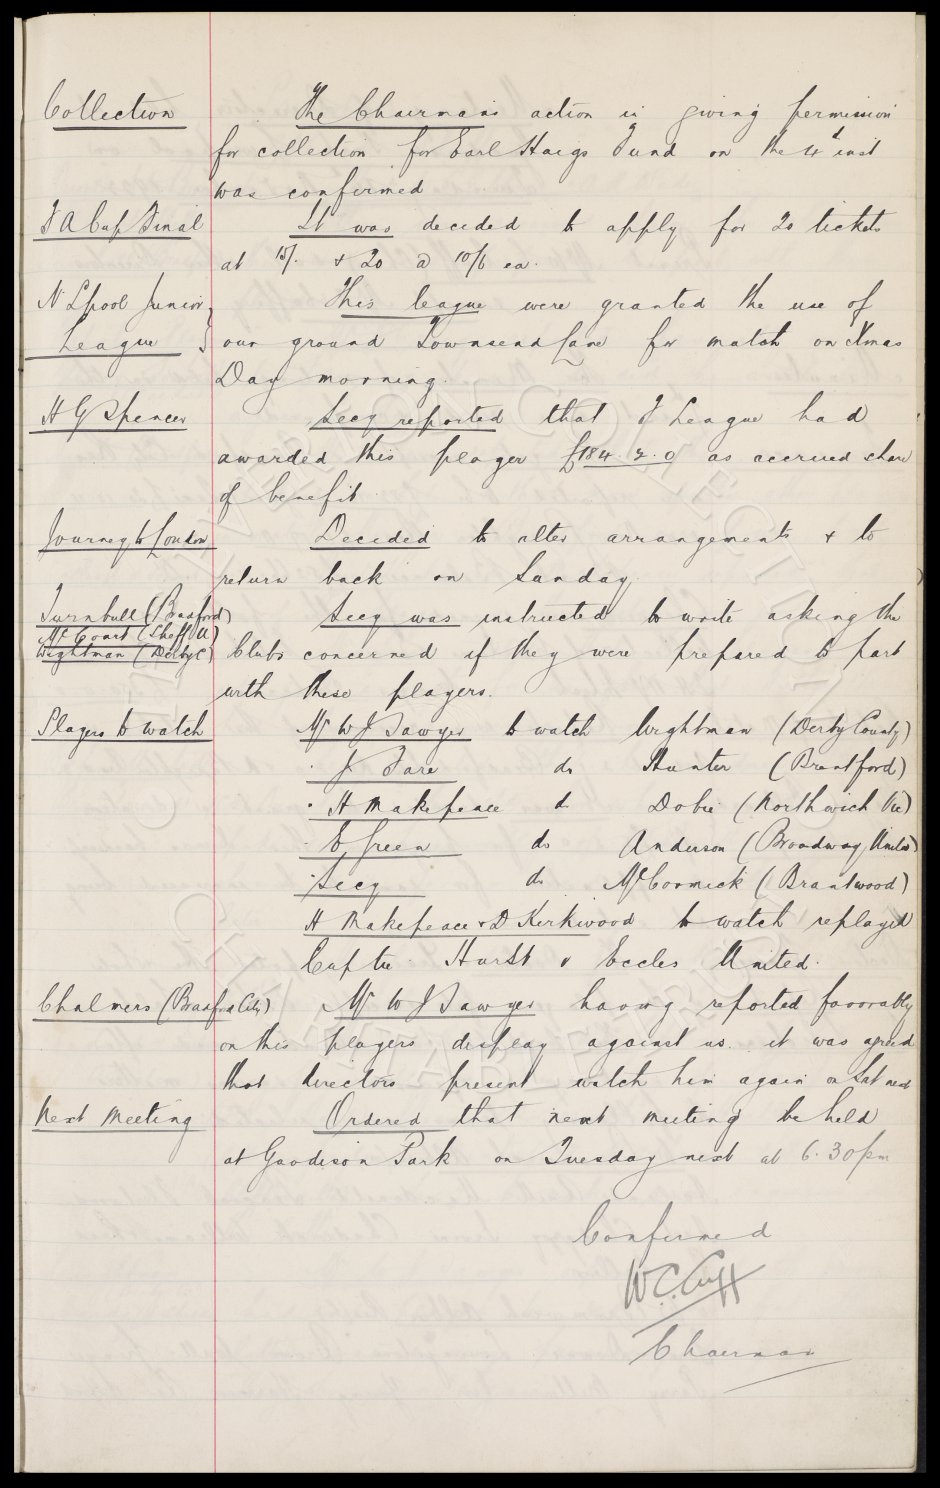 Collection The Chairmans action in giving permission
for collection for Earl Haigs Fund on the 4th inst
was confirmed
F A Cup Final It was decided to apply for 20 tickets
at 15/- & 20 @ 10/6 ea.
N Lpool Junior This league were granted the use of
League our ground Townsend Lane for match on Xmas
Day morning.
H G Spencer Secy reported that F League had
awarded this player £184. 2. 0 as accrued share
of benefit
Journey to London Decided to alter arrangements & to
return back on Sunday
Turnbull (Bradford) Secy was instructed to write asking the
McCourt (Sheff U)
Wightman (Derby C) Clubs concerned if they were prepared to part
with these players.
Players to watch Mr W J Sawyer to watch Wightman (Derby County)
" J Fare do Hunter (Brantford)
" H Makepeace do Dobie (Northwich Vic)
" E Green do Anderson (Broadway United)
" Secy do McCormick (Brantwood)
H Makepeace & D Kirkwood to watch replayed
Cup tie. Hurst v Eccles United.
Chalmers (Bradford City) Mr W J Sawyer having reported favorably
on this players display against us. it was agreed
that directors present watch him again on Sat next
Next Meeting Ordered that next meeting be held
at Goodison Park on Tuesday next at 6.30pm
Confirmed
W.C. Cuff
Chairman